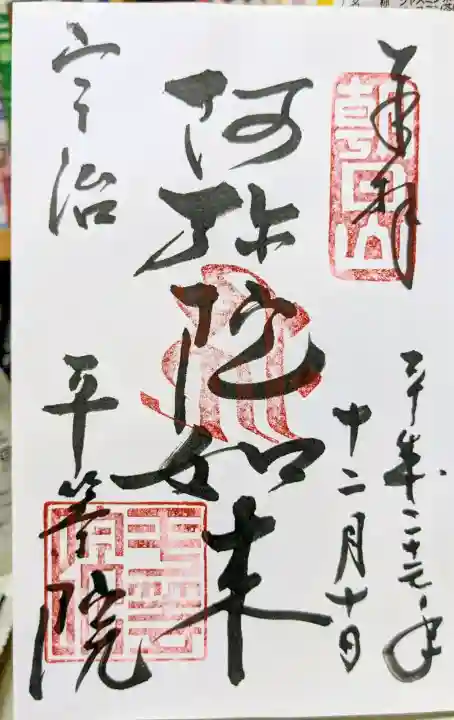 奉拝
朝日山
平成二十九年
十二月十日
阿弥陀如来
宇治
平等院